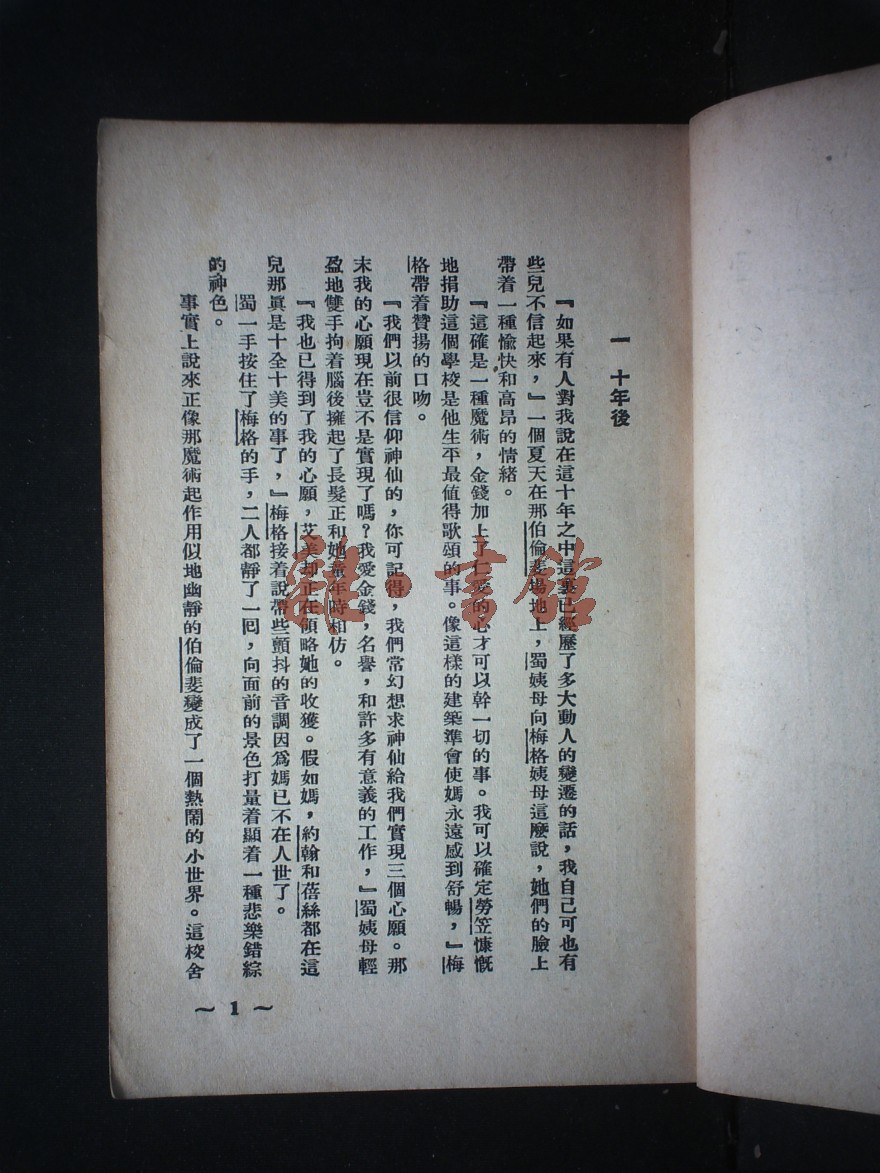 一 十年後
『如果有人對我說在這十年之中這裏已經歷了多大動人的變遷的話，我自己可也有
些兒不信起來，』一個夏天在那伯倫斐場地上，蜀姨母向梅格姨母這麼說，她們的臉上
帶着一種愉快和高昂的情緒。
『這確是一種魔術，金錢加上了仁愛的心才可以幹一切的事。我可以確定勞笠慷慨
地捐助這個學校是他生平最值得歌頌的事。像這樣的建築準會使媽永遠感到舒暢，』梅
格帶着贊揚的口吻。
『我們以前很信仰神仙的，你可記得，我們常幻想求神仙給我們實現三個心願。那
末我的心願現在豈不是實現了嗎？我愛金錢，名譽，和許多有意義的工作，』蜀姨母輕
盈地雙手拘着腦後擁起了長髮正和她童年時相仿。
『我也已得到了我的心願，艾美却正在領略她的收獲。假如媽，約翰和蓓絲都在這
兒那眞是十全十美的事了，』梅格接着說帶些顫抖的音調因爲媽已不在人世了。
蜀一手按住了梅格的手，二人都靜了一囘，向面前的景色打量着顯着一種悲樂錯綜
的神色。
事實上說來正像那魔術起作用似地幽靜的伯倫斐變成了一個熱鬧的小世界。這校舍
～ 1 ～
雜·書館